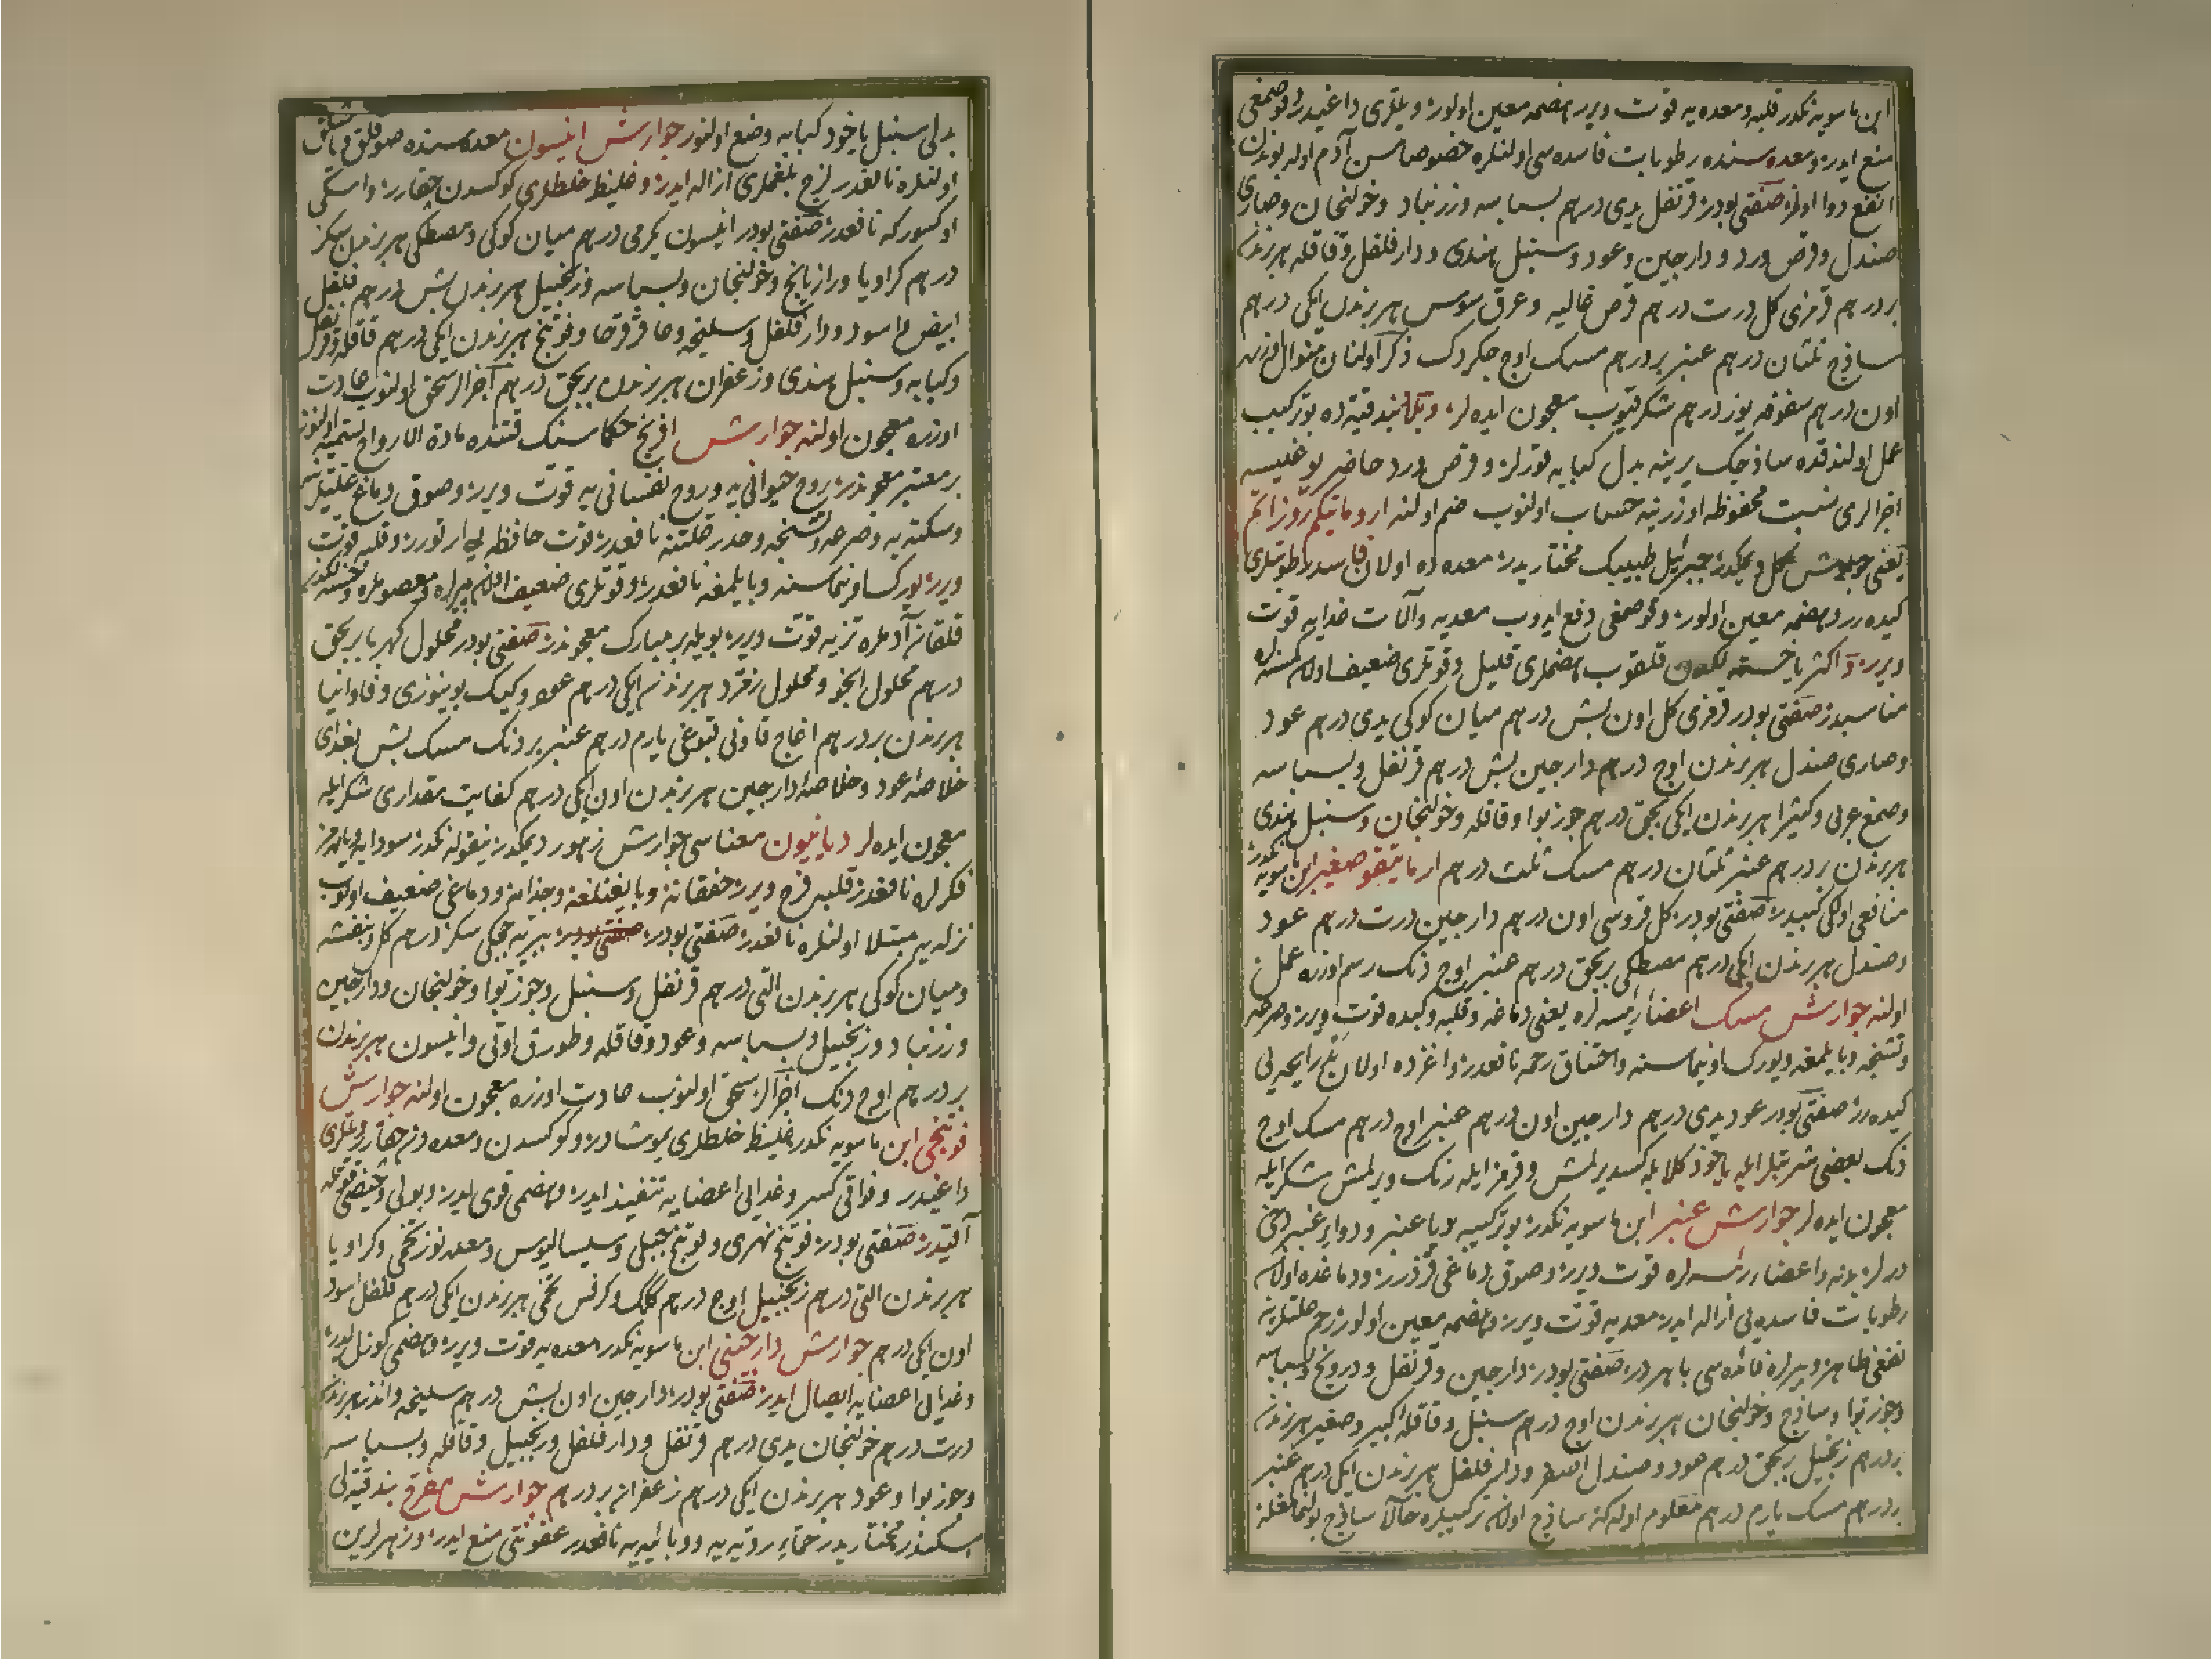 ابن ماسويه نكدر قلبه ومعده يه قوت ويرر هضمه معين اولور ويللرى داغيدر وقوصمغى
منع ايدر ومعده سنده رطوبات فاسده سى اولنلره خصوصا مسن آدم اوله بوندن
انفع دوا اولمز صنعتى بودر قرنفل يدى درهم بسباسه وزرنباد وخولنجان وصارى
صندل وقرص ورد ودارجين وعود وسنبل هندى ودارفلفل وقاقله هربرندن
بر درهم قرمزى كل درت درهم قرص غاليه وعرق سوس هربرندن ايكى درهم
ساذج ثلثان درهم عنبر بر درهم مسك اوج جكردك ذكر اولنان منوال اوزره
اون درهم سفوفه يوز درهم شكر قيوب معجون ايده لر بندقيه ده بو تركيب
عمل اولندقده ساذجك يرينه بدل كبابه قورلر وقرص ورد حاضر بولنميسه
اجزالرى نسبت محفوظه اوزرينه حساب اولنوب ضم اولنه اروماتيكم روزاتم
يعنى جوارش كل ديمكدر جبرئيل طبيبك مختاريدر معده ده اولان فاسد رطوبتلرى
كيده رر وهضمه معين اولور وقوصمغى دفع ايدوب معديه وآلات غدايه قوت
ويرر واكثر يا خسته لكدن قلقوب هضملرى قليل وقوتلرى ضعيف اولان كمسنه لره
مناسبدر صنعتى بودر قرمزى كل اون بش درهم ميان كوكى يدى درهم عود
وصارى صندل هربرندن اوج درهم دارجين بش درهم قرنفل وبسباسه
وصمغ عربى وكثيرا هربرندن ايكى بجق درهم جوز بوا وقاقله وخولنجان وسنبل هندى
هربرندن بر درهم عنبر ثلثان درهم مسك ثلث درهم ارماتيقو صغير ابن ماسويه نكدر
منافعى اولكى كبيدر صنعتى بودر كل قروسى اون درهم دارجين درت درهم عود
وصندل هربرندن ايكى درهم مصطكى بر بجق درهم عنبر اوج دنك رسم اوزره عمل
اولنه جوارش مسك اعضاء رئيسه لره يعنى دماغه وقلبه وكبده قوت ويرر وصرعه
وتشنجه وبايلمغه ويورك اوينماسنه واختناق رحمه نافعدر واغزده اولان رايحه يى
كيده رر صنعتى بودر عود يدى درهم دارجين اون درهم عنبر اوج درهم مسك اوج
دنك بعضى شربتلر ايله ياخود كلابله كسديرلمش وقرمز ايله رنك ويرلمش شكر ايله
معجون ايده لر جوارش عنبر ابن ماسويه نكدر بو تركيبه ديا عنبر ودواء عنبر دخى
ديرلر بدنه واعضاء رئيسه لره قوت ويرر وصوق دماغى قزدرر ودماغده اولان
رطوبات فاسده يى ازاله ايدر معديه قوت ويرر وهضمه معين اولور رحم علتلرينه
نفعى ظاهر وپيرلره فائده سى باهردر صنعتى بودر دارجين وقرنفل ودرونج وبسباسه
وجوز بوا وساذج وخولنجان هربرندن اوج درهم سنبل وقاقله كبير وصغير هربرندن
بر درهم زنجبيل بر بجق درهم عود وصندل اصفر ودارفلفل هربرندن ايكى درهم عنبر
بر درهم مسك يارم درهم معلوم اوله كه ساذج اولان تركيبلره حالا ساذج بولنمامغله
بدلى سنبل ياخود كبابه وضع اولنور جوارش انيسون معده سنده صوقلق وياشلق
اولنلره نافعدر لزج بلغملرى ازاله ايدر وغليظ خلطلرى كوكسدن چيقارر واسكى
اوكسوركه نافعدر صنعتى بودر انيسون يكرمى درهم ميان كوكى ومصطكى هربرندن سكز
درهم كراويا ورازيانج وخولنجان وبسباسه وزنجبيل هربرندن بش درهم فلفل
ابيض واسود ودارفلفل وسليخه وعاقرقرحا وفوتنج هربرندن ايكى درهم قاقله وقرنفل
وكبابه وسنبل هندى وزعفران هربرندن بر بجق درهم اجزالر سحق اولنوب عادت
اوزره معجون اولنه جوارش افرنج حكماسنك قتنده مادة الارواح تسميه اولنور
بر معتبر معجوندر روح حيوانى يه وروح نفسانى يه قوت ويرر وصوق دماغ علتلرينه
وسكته يه وصرعه وتشنجه وخدر علتنه نافعدر قوت حافظه يى ارتورر وقلبه قوت
ويرر يورك اوينماسنه وبايلمغه نافعدر وقوتلرى ضعيف اولان پيرلره ومعصوملره وخسته لكدن
قلقان آدملره تيز يه قوت ويرر بويله بر مبارك معجوندر صنعتى بودر محلول كهربا بر بجق
درهم محلول انجو ومحلول زمرد هربرندن ايكى درهم عود وكيك بوينوزى وفاوانيا
هربرندن بر درهم اغاج قاونى قبوغى يارم درهم عنبر بر دنك مسك بش بغداى
خلاصهٔ عود وخلاصهٔ دارجين هربرندن اون ايكى درهم كفايت مقدارى شكر ايله
معجون ايده لر ديانيون معناسى جوارش زهور ديمكدر نيقوله نكدر سودايه
فكرلره نافعدر قلبه فرح ويرر خفقانه وبايغنلغه وجذامه ودماغى ضعيف اولوب
نزله يه مبتلا اولنلره نافعدر صنعتى بودر صنعتى بودر بيريه چچكى سكز درهم كل وبنفشه
وميان كوكى هربرندن التى درهم قرنفل وسنبل وجوز بوا وخولنجان ودارجين
وزرنباد وزنجبيل وبسباسه وعود وقاقله وطورق اوتى وانيسون هربرندن
بر درهم اوج دنك اجزالر سحق اولنوب عادت اوزره معجون اولنه جوارش
فوتنجى ابن ماسويه نكدر غليظ خلطلرى يومشادر وكوكسدن ومعده دن چيقارر ويللرى
داغيدر وفواقى كسر وغدايى اعضايه تنفيذ ايدر وهضمى قوى ايدر وبولى وحيضى قوتله
آقيدر صنعتى بودر فوتنج نهرى وفوتنج جبلى وسيساليوس ومعدنوز تخمى وكراويا
هربرندن التى درهم زنجبيل اوج درهم ككلك وكرفس تخمى هربرندن ايكى درهم فلفل اسود
اون ايكى درهم جوارش دارچينى ابن ماسويه نكدر معده يه قوت ويرر وهضمى كوزل ايدر
وغدايى اعضايه ايصال ايدر صنعتى بودر دارجين اون بش درهم سليخه واندز هربرندن
درت درهم خولنجان يدى درهم قرنفل ودارفلفل وزنجبيل وقاقله وبسباسه
وجوز بوا وعود هربرندن ايكى درهم زعفران بر درهم جوارش مفرح بندقيه لى
اسكندر مختاريدر حماء رديه يه ووبائيه يه نافعدر عفونتى منع ايدر وزهرلرين